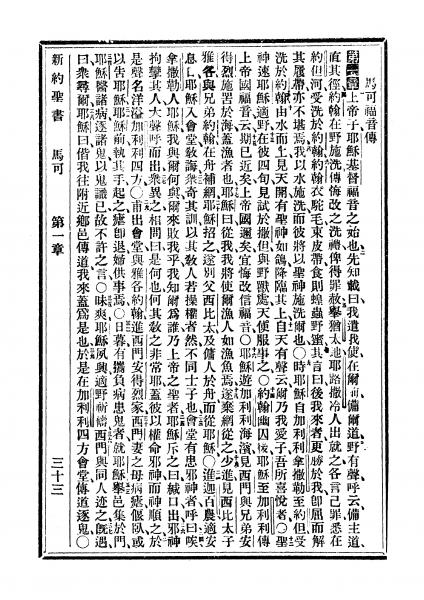 馬可福音傳
第一章上帝子耶穌基督福音之始也先知載曰我遣我使在爾前備爾道野有聲呼云備主道
直其徑約翰在野施洗傳悔改之洗禮俾得罪赦舉猶太地耶路撒冷人出就之各言己罪悉在
約但河受洗於約翰約翰衣駝毛束皮帶食則蝗蟲野蜜其言曰後我來者更勝於我卽屈而解
其履帶亦不堪焉我以水施洗而彼將以聖神施洗爾也○時耶穌自加利利拿撒勒至約但受
洗於約翰由水而上見天開有聖神如鴿降臨其上自天有聲云爾乃我愛子吾所喜悅者○聖
神速耶穌適野在彼四旬見試於撒但與野獸處天使服事之○約翰幽囚後耶穌至加利利傳
上帝國福音云期已近矣上帝國邇矣宜悔改信福音○耶穌遊加利利海濱見西門與兄弟安
得烈施罟於海蓋漁者也耶穌曰從我我將使爾漁人如漁魚焉遂棄網從之少進見西比太子
雅各與兄弟約翰在舟補網耶穌招之遂別父西比太及傭人於舟而從耶穌○進迦百農適安
息日耶穌入會堂敎誨衆奇其訓以其敎人若操權者然不同士子也會堂有患邪神者呼曰唉
拿撒勒人耶穌我與爾何與爾來敗我乎我知爾爲誰乃上帝之聖者耶穌斥之曰緘口出邪神
拘攣其人大聲呼而出衆異之相問曰是何也何其敎之非常耶蓋彼以權命邪神而神順之於
是聲名洋溢加利利四方○甫出會堂與雅各約翰進西門安得烈家西門妻之母病瘧偃臥或
以告耶穌耶穌前執其手起之瘧卽退婦供事焉○日暮有攜負病患鬼者就耶穌舉邑集於門
耶穌醫諸病逐諸鬼以鬼識己故不許之言○味爽耶穌夙興適野祈禱西門與同人迹之旣遇
曰衆尋爾耶穌曰偕我往附近鄉邑傳道我來蓋爲是也於是在加利利四方會堂傳道逐鬼○
新約聖書 馬可 第一章 三十三